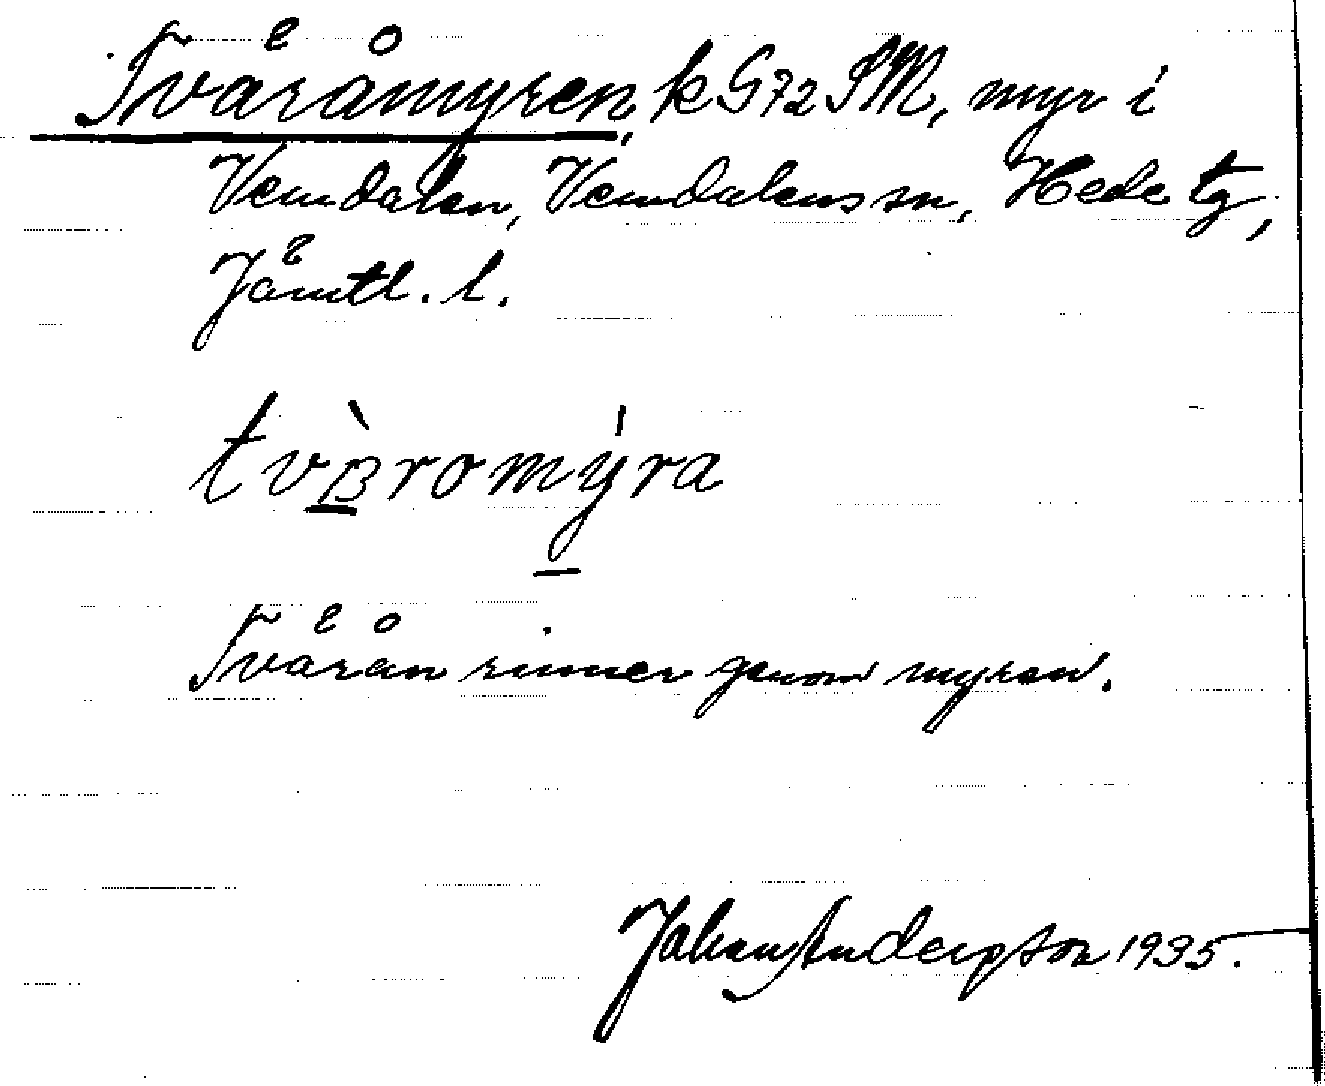 Tväråmyren, k G72 SM, myr i
Vemdalen, Vemdalens sn, Hede tg,
Jämtl. l.
tvʙ̀romýra
Tvärån rinner genom myren.
Johan Anderson 1935.